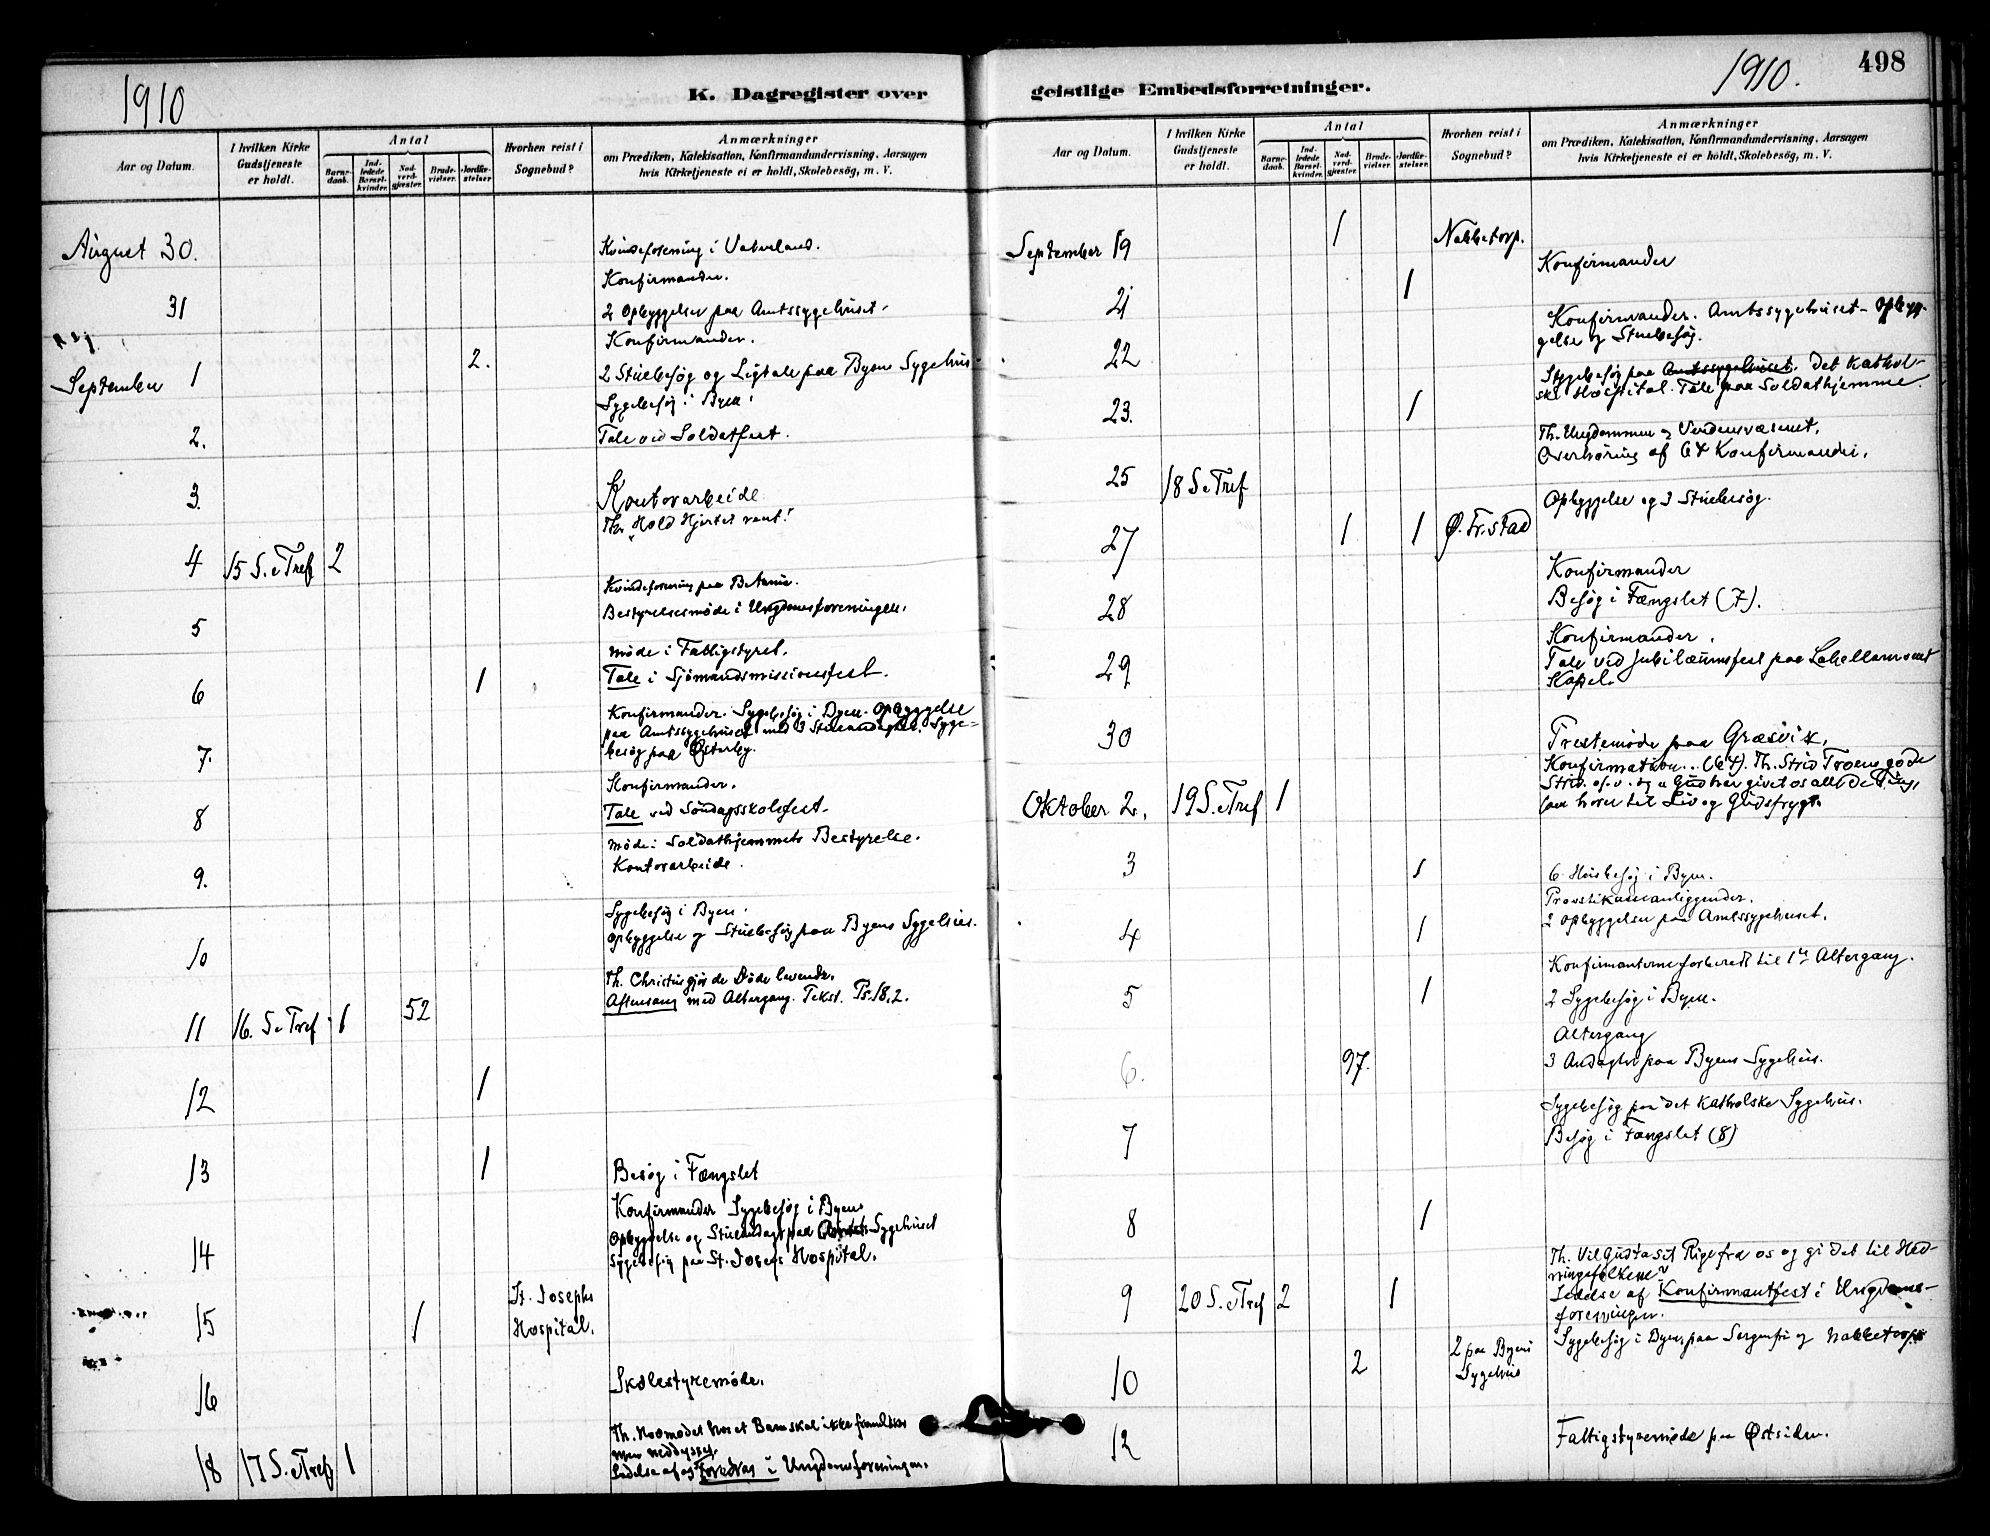 1910
K. Dagregister over
Aar og Datum.
I hvilken Kirke Gudstjeneste er holdt.
Antal
Barnedaab.
Indledede Barselkvinder.
Nadverdgjæster.
Brudevielser.
Jordfæstelser.
Hvorhen reist i Sognebud?
Anmærkninger
om Prædiken, Katekisation, Konfirmandundervisning, Aarsagen
hvis Kirketjeneste ei er holdt, Skolebesøg, m. V.
August 30.
Kvindeforening i
Konfirmander.
31
2 Opbyggelser paa Amtssygehuset.
Konfirmander.
September 1
2.
2 Stuebesøg og Ligtale paa Byens Sygehus
Sygebesøg i Byen.
2.
Tale ved Soldatfest.
3.
Kontorarbeide
Th. Hold Hjertet rent!
4 15 S. e Tref 2
Kvindeforening paa Betania.
Bestyrelsesmøde i Ungdomsforeningen.
5
Møde i Fattigstyret.
Tale i Sjømandsmissionsfest.
6
1
Konfirmander. Sygebesøg i Byen. Opbyggelse
paa Amtssygehuset med 3 Stueandagter. Syge-
besøg paa Østerby.
7.
Konfirmander.
Tale ved Søndagsskolefest.
8
Møde i Soldathjemmets Bestyrelse.
Kontorarbeide.
9.
Sygebesøg i Byen.
Opbyggelse og Stuebesøg paa Byens Sygehus.
10
Th. Christus gjør de Døde levende.
Aftensang med Altergang. Tekst. Ps. 18,2.
11 16. S. e Tref 1 52
12 1
13 1
Besøg i Fængslet
Konfirmander Sygebesøg i Byen
Opbyggelse og Stueandagt paa Amts Sygehuset
Sygebesøg paa St. Josefs Hospital.
14
15 1 St. Josephs
Hospital.
16
Skolestyremøde.
Th. Hovmodet hos et Barn skal ikke
men neddysses.
Ledelse af og Foredrag i Ungdomsforeningen.
18 17 S. e Tref 1
1910.
498
geistlige Embedsforretninger.
Aar og Datum.
I hvilken Kirke Gudstjeneste er holdt.
Antal
Barnedaab.
Indledede Barselkvinder.
Nadverdgjæster.
Brudevielser.
Jordfæstelser.
Hvorhen reist i Sognebud?
Anmærkninger
om Prædiken, Katekisation, Konfirmandundervisning, Aarsagen
hvis Kirketjeneste ei er holdt, Skolebesøg, m. V.
September 19 1 Nabbetorp.
Konfirmander
21 1
Konfirmander. Amtssygehuset - Opbyg-
gelse og Stuebesøg.
22
Sygebesøg paa Amtssygehuset. Det kathol-
ske Hospital. Tale paa Soldathjemmet.
23. 1
Th. Ungdommen og Verdensvæsenet.
Overhøring af 64 Konfirmander.
25 18 S. e Tref
Opbyggelse og 3 Stuebesøg.
27 1 1 Ø. Fr.stad
Konfirmander
Besøg i Fængslet (7).
28
Konfirmander.
Tale ved Jubilæumsfest paa
Kapel.
29
30
Prestemøde paa Græsvik.
Konfirmation.. (64). Th. Strid Troens gode
Strid. o.s.v. og Gud har givet os alle de Ting,
som hører til Liv og Gudsfrygt.
Oktober 2. 19 S. e Tref 1
3 1
6 Husbesøg i Byen.
2 Opbyggelser paa Amtssygehuset.
4 1
Konfirmanterne forberedt til 1ste Altergang.
5 1
2 Sygebesøg i Byen.
Altergang
6. 97.
3 Andagter paa Byens Sygehus.
Sygebesøg paa det katholske Sygehus.
7
Besøg i Fængslet (8)
8 1
Th. Vil Gud ta sit Rige fra os og gi det til Hed-
ningefolkene?
Ledelse af Konfirmantfest i Ungdoms-
foreningen.
9 20 S. e Tref 2 1
Sygebesøg i Byen, paa Sorgenfri og Nabbetorp
10 2 2 paa Byens
Sygehus
12
Fattigstyremøde paa Østsiden.